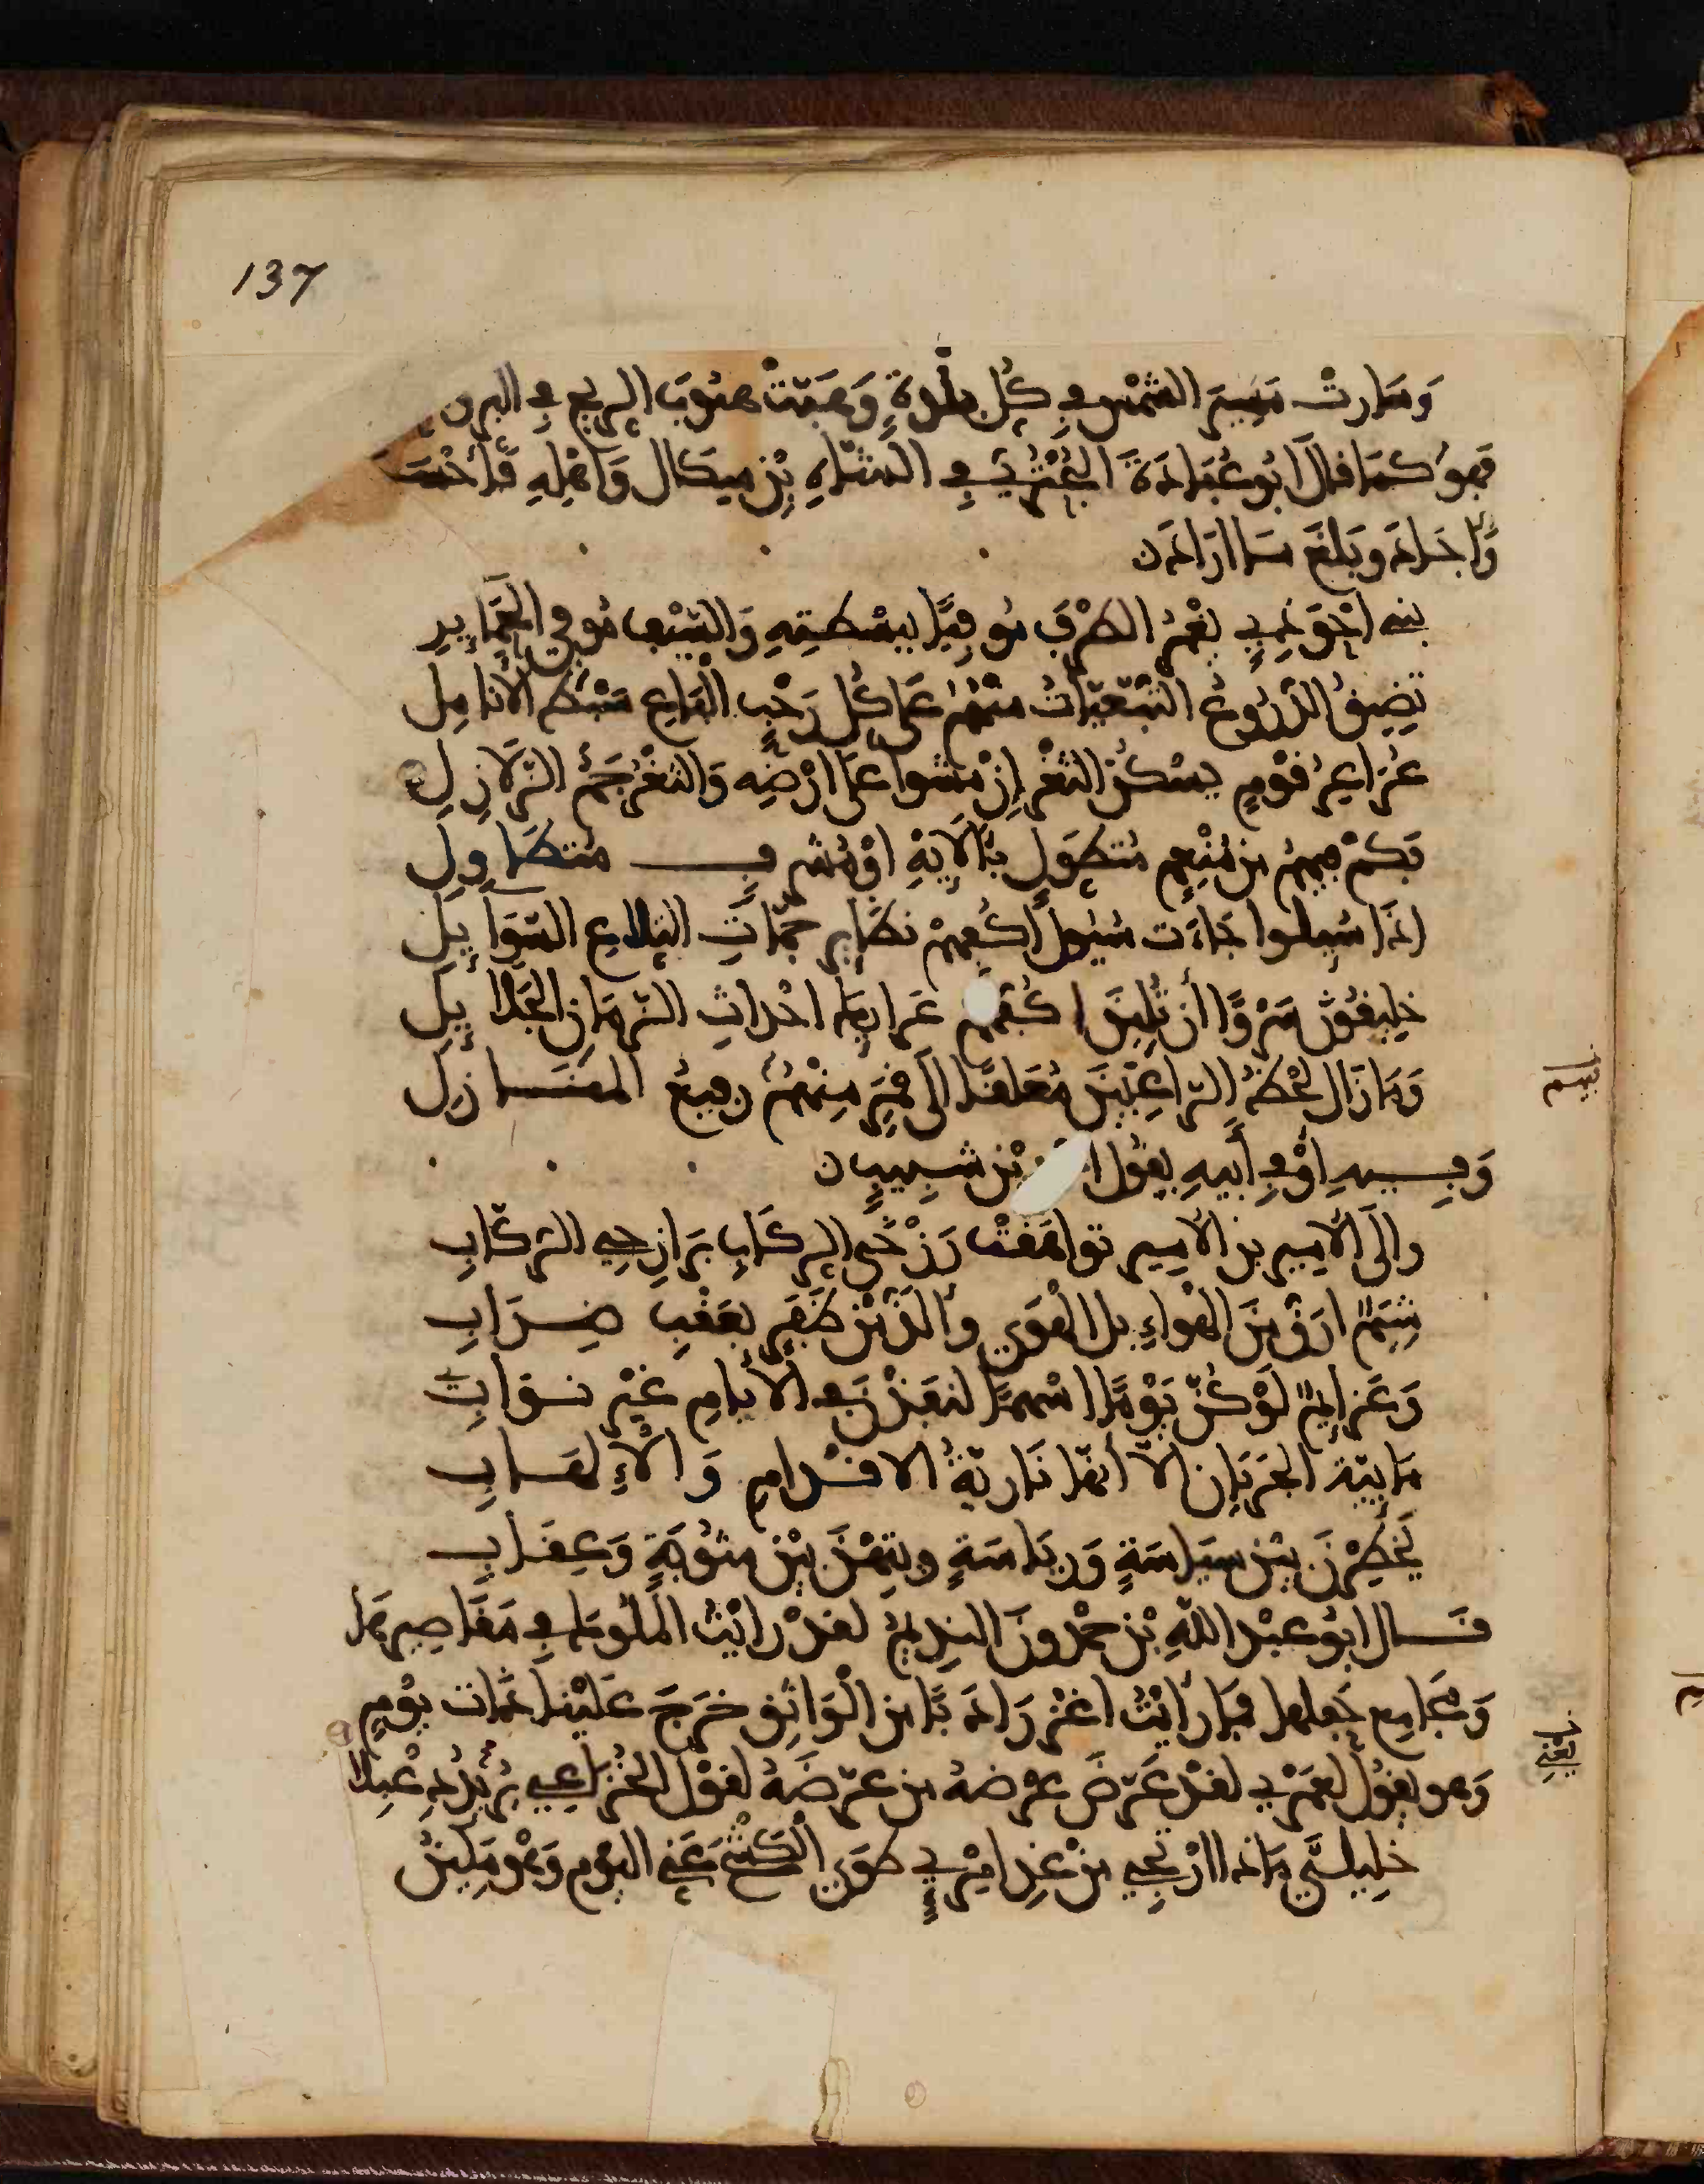 137
وَسَارتْ مَسِيرَ الشَّمْسِ فِي كُلِّ بَلْدَةٍ وَهَبَّتْ هبُوبَ الرِيحِ فِي البر و
فهوَ كمَا قال ابُو عُبَادَةَ البُحْتُرِي فِي الشاهِ بْنِ مِيكَال وَاهْلِهِ فَأحْسَ
وَأجَادَ وبَلغَ مَا ارَادَ ن
بنه احْوَذِي يغُمُّ الطرْفَ مُوفيًا ببَسْطتِهِ وَالسَّيْفِ مُوفِي الحَمَايِلِ
تَضِيقُ الدُّرُوعُ التُّبَّعِيَّاتُ مِنْهُمُ عَلَى كُلِّ رَحْبِ البَاعِ سَبْطِ الأنامِلِ
عُرَاعِرُ قَوْمٍ يسْكنُ الثغْرُ إنْ مَشَوا عَلَى ارْضِهِ وَالثغْرُ جَمُّ الزَّلازِلِ
فَكمْ فِيهِمُ مِن مُنْعِمٍ مُتطوّلٍ بِآلايِهِ اوْ مُشرِفٍ مُتطاولِ
اذَا سُيلوا جَاءَت سُيُولُ اكُفِّهِمْ نظاير جَمّاتِ التلاعِ السّوَايِلِ
خليقُونَ سَرْوًا أنْ تُلِينَ اكُفُّهم عَرايكَ احْداثِ الزّمَانِ الجَلايِلِ
وَمَا زَالَ لحْظُ الرّاغِبِينَ مُعَلقًا الَى قمَرٍ مِنْهُمُ رفِيعِ المنَازِلِ
وَفِيهِ اوْ فِي أبِيهِ يقُولُ بْن شَبِيبٍ ن
والَى الأمِيرِ بن الأمِيرِ تواهَقتْ رَزْحَى الرِكَابِ برَازِحِي الرُكّابِ
شِيَمٌ ارَقُّ مِنَ الهَوَاءِ بل الهَوَى وألذّ مِن ظَفَرٍ بعَقْبِ ضِرَابِ
وَعَزايمٌ لَوْ كُنّ يَوْمًا اسْهمًا لنفَذْنَ فِي الأيامِ غيْرَ نوَابِ
مَايِيّةُ الجرَيَانِ الّا أنّها نَاريّةُ الاقدَامِ وَالإلهَابِ
يخْطِرْنَ بيْن سيَاسَةٍ وَريَاسَةٍ وبتِهْنَ بيْن مثُوبَةٍ وَعِقابِ
قَال ابُو عبْد اللهِ بْن حَمْدونَ النِديمُ لقدْ رايْتُ المُلُوكَ فِي مَقَاصِيرِهَا
وَمَجَامِعِ حَفلِها فمَا رأيْتُ اغْزرَ ادَبًا من الْوَاثِقِ خرَجَ عَليْنا ذَات يَوْمٍ
وَهو يقُولُ لعَمْرِي لقدْ عَرّضَ عِرْضهُ من عرّضَهُ لقوْلِ الخُزَاعِي يُرِيدُ دِعْبِلًا
خلِيليَّ مَاذا ارْتجِي مِنْ غَدِ امْرِي طوَى الْكَشْحَ عَنِّي اليَوْمَ وَهْوَ مَكِينُ
يعني